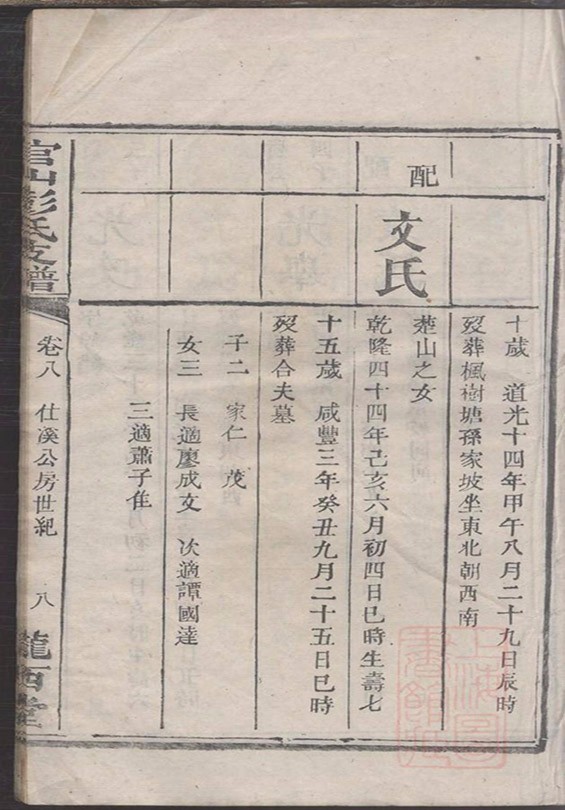 十歲 道光十四年甲午八月二十九日辰時
歿葬楓樹塘孫家坡坐東北朝西南
配 文氏
楚山之女
乾隆四十四年己亥六月初四日巳時生壽七
十五歲 咸豐三年癸丑九月二十五日巳時
歿葬合夫墓
子二 家仁 茂
女三 長適廖成文 次適譚國達
三適蕭子隹
官山彭氏支譜 卷八 仕溪公房世紀 八 隴西堂
上海圖書館藏